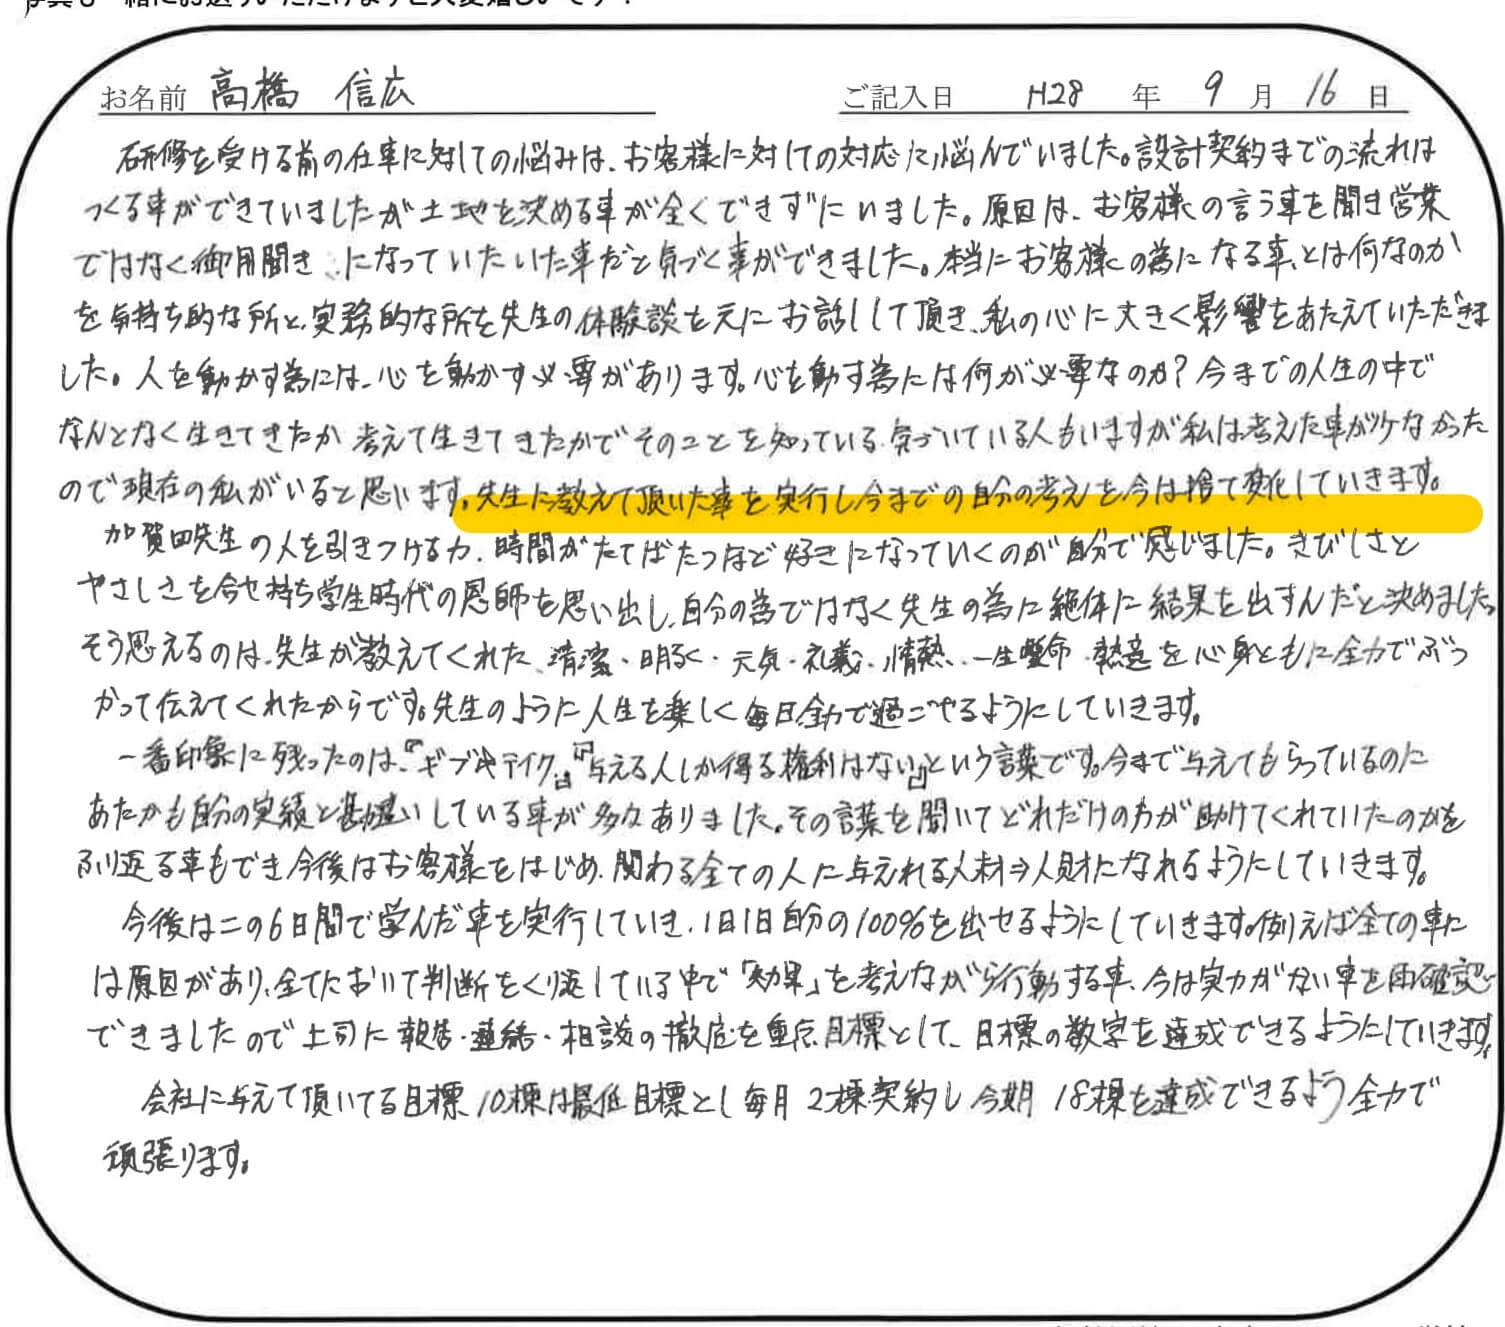 写真も一緒にお送りいただけますと大変嬉しいです！
お名前 高橋 信広 ご記入日 H28 年 9 月 16 日
研修を受ける前の仕事に対しての悩みは、お客様に対しての対応に悩んでいました。設計契約までの流れは
つくる事ができていましたが土地を決める事が全くできずにいました。原因は、お客様の言う事を聞き営業
ではなく御用聞きになっていたいた事だと気づく事ができました。本当にお客様の為になる事、とは何なのか
を気持ち的な所と、実務的な所を先生の体験談を元にお話しして頂き、私の心に大きく影響をあたえていただきま
した。人を動かす為には、心を動かす必要があります。心を動す為には何が必要なのか？今までの人生の中で
なんとなく生きてきたか 考えて生きてきたかでそのことを知っている、気づいている人もいますが私は考えた事がなかった
ので現在の私がいると思います。先生に教えて頂いた事を実行し今までの自分の考えを今は捨て変化していきます。
加賀田先生の人を引きつける力、時間がたてばたつほど好きになっていくのが自分で感じました。きびしさと
やさしさを合せ持ち学生時代の恩師を思い出し、自分の為ではなく先生の為に絶体に結果を出すんだと決めました。
そう思えるのは、先生が教えてくれた、清潔・明るく・元気・礼義・情熱・一生懸命・熱意を心身ともに全力でぶつ
かって伝えてくれたからです。先生のように人生を楽しく毎日全力で過ごせるようにしていきます。
一番印象に残ったのは、『ギブ&テイク』『与える人しか得る権利はない』という言葉です。今まで与えてもらっているのに
あたかも自分の実績と勘違いしている事が多々ありました。その言葉を聞いてどれだけの方が助けてくれていたのかを
ふり返る事もでき今後はお客様をはじめ、関わる全ての人に与えれる人材⇒人財になれるようにしていきます。
今後はこの6日間で学んだ事を実行していき、1日1日自分の100%を出せるようにしていきます。例えば全ての事に
は原因があり、全てにおいて判断をくり返している中で「効果」を考えながら行動する事、今は実力がない事を再確認
できましたので上司に報告・連絡・相談の徹底を重点目標として、目標の数字を達成できるようにしていきます。
会社に与えて頂いてる目標10棟は最低目標とし毎月2棟契約し今期18棟を達成できるよう全力で
頑張ります。